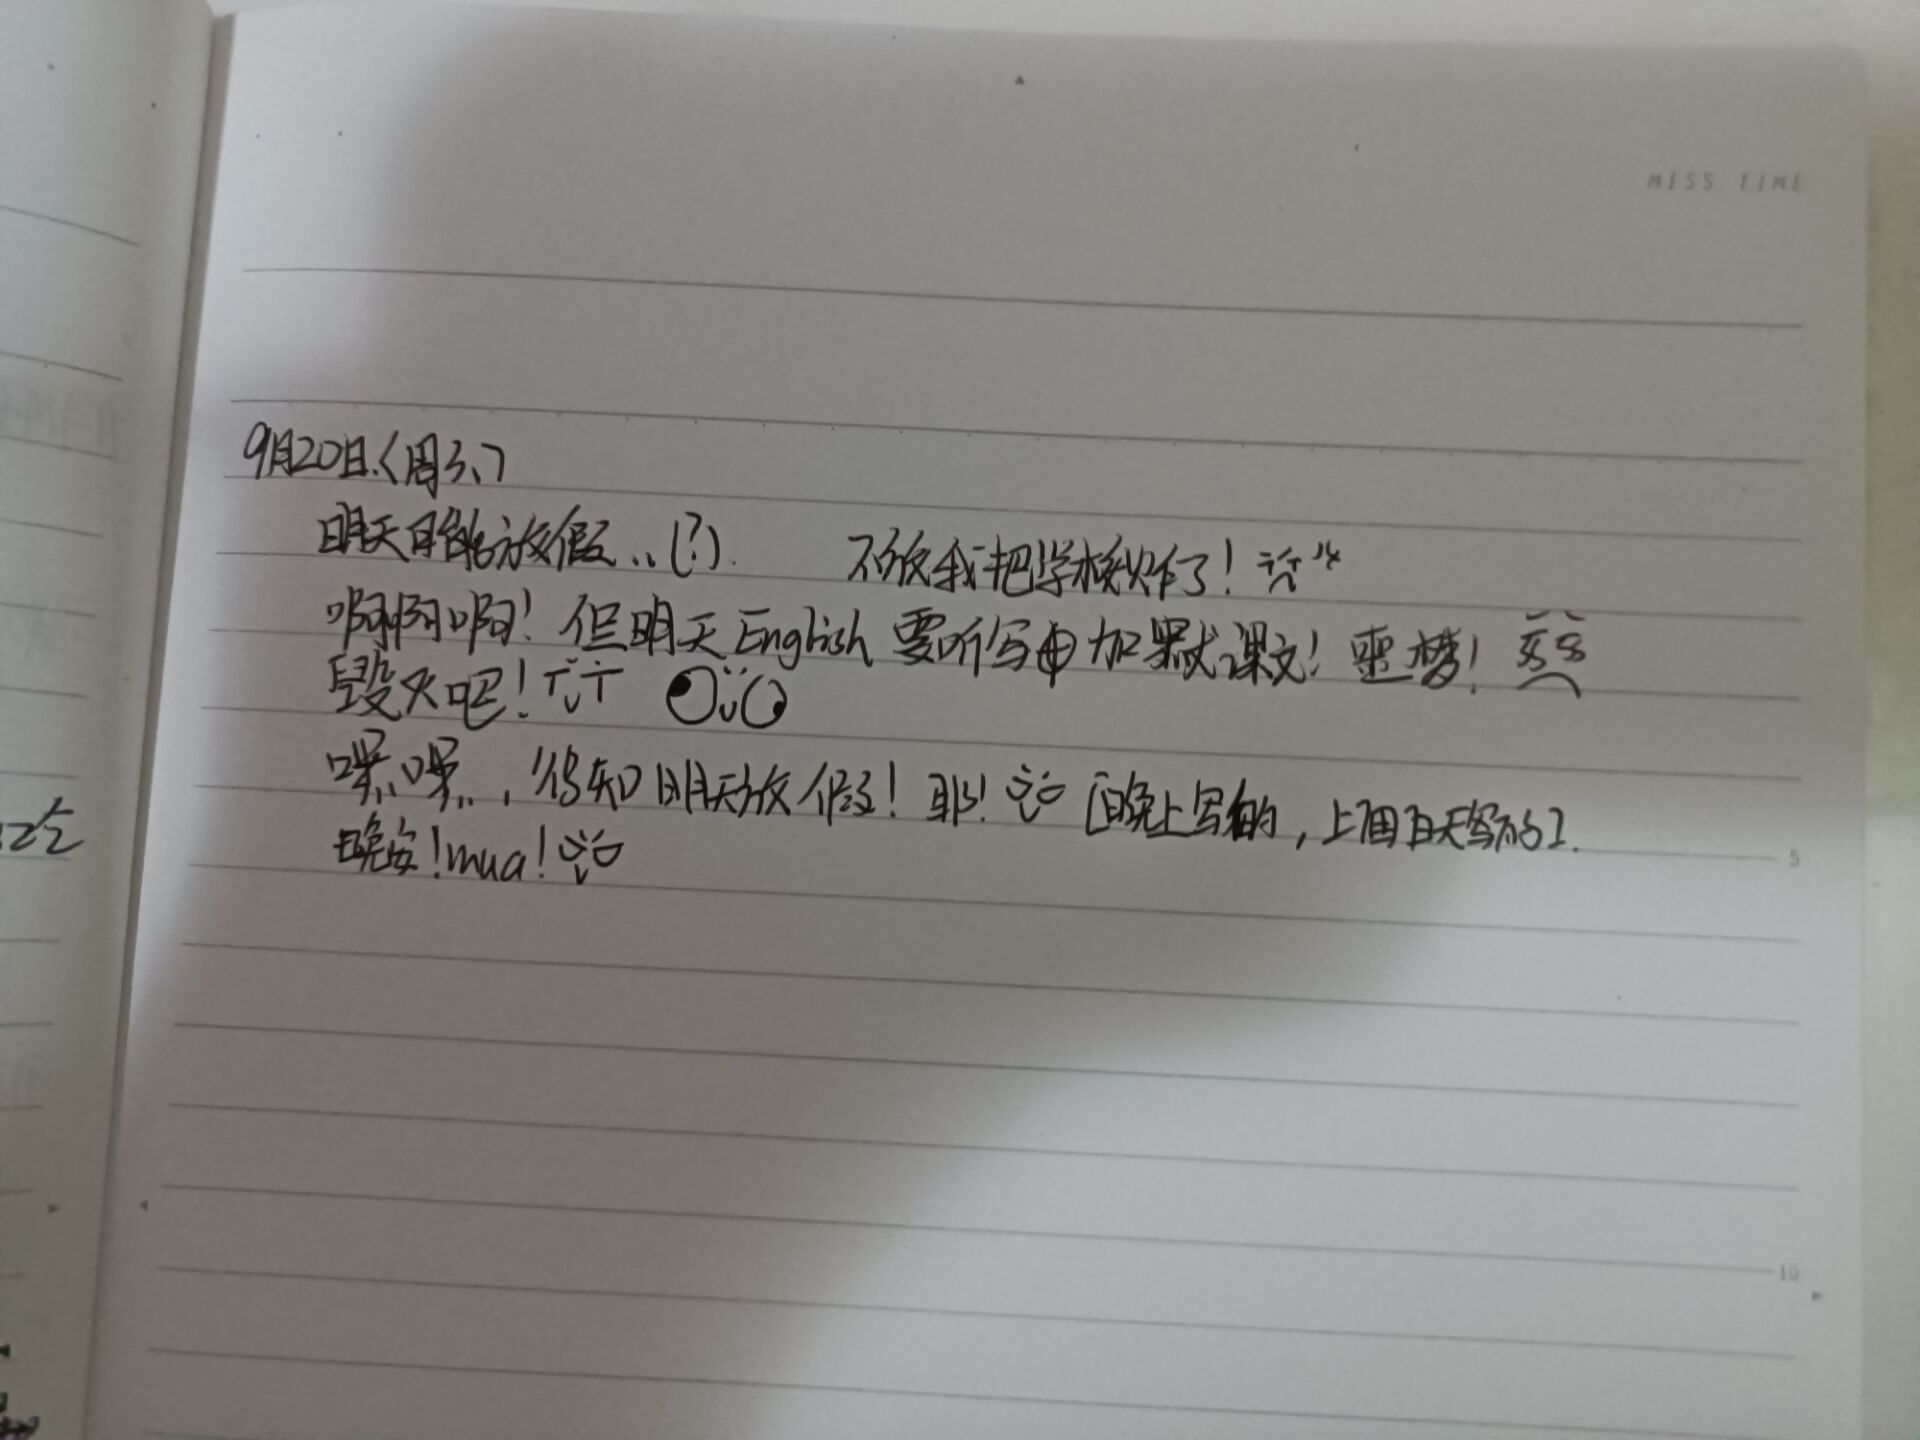 MISS TIME
9月20日.<周3、>
明天日能放假..(?). 不放我把学校炸了!
啊啊啊! 但明天English要听写 加默课文! 噩梦!
毁灭吧!
嘿嘿..,得知明天放假! 耶! [晚上写的,上面白天写的].
晚安!mua!
5
10